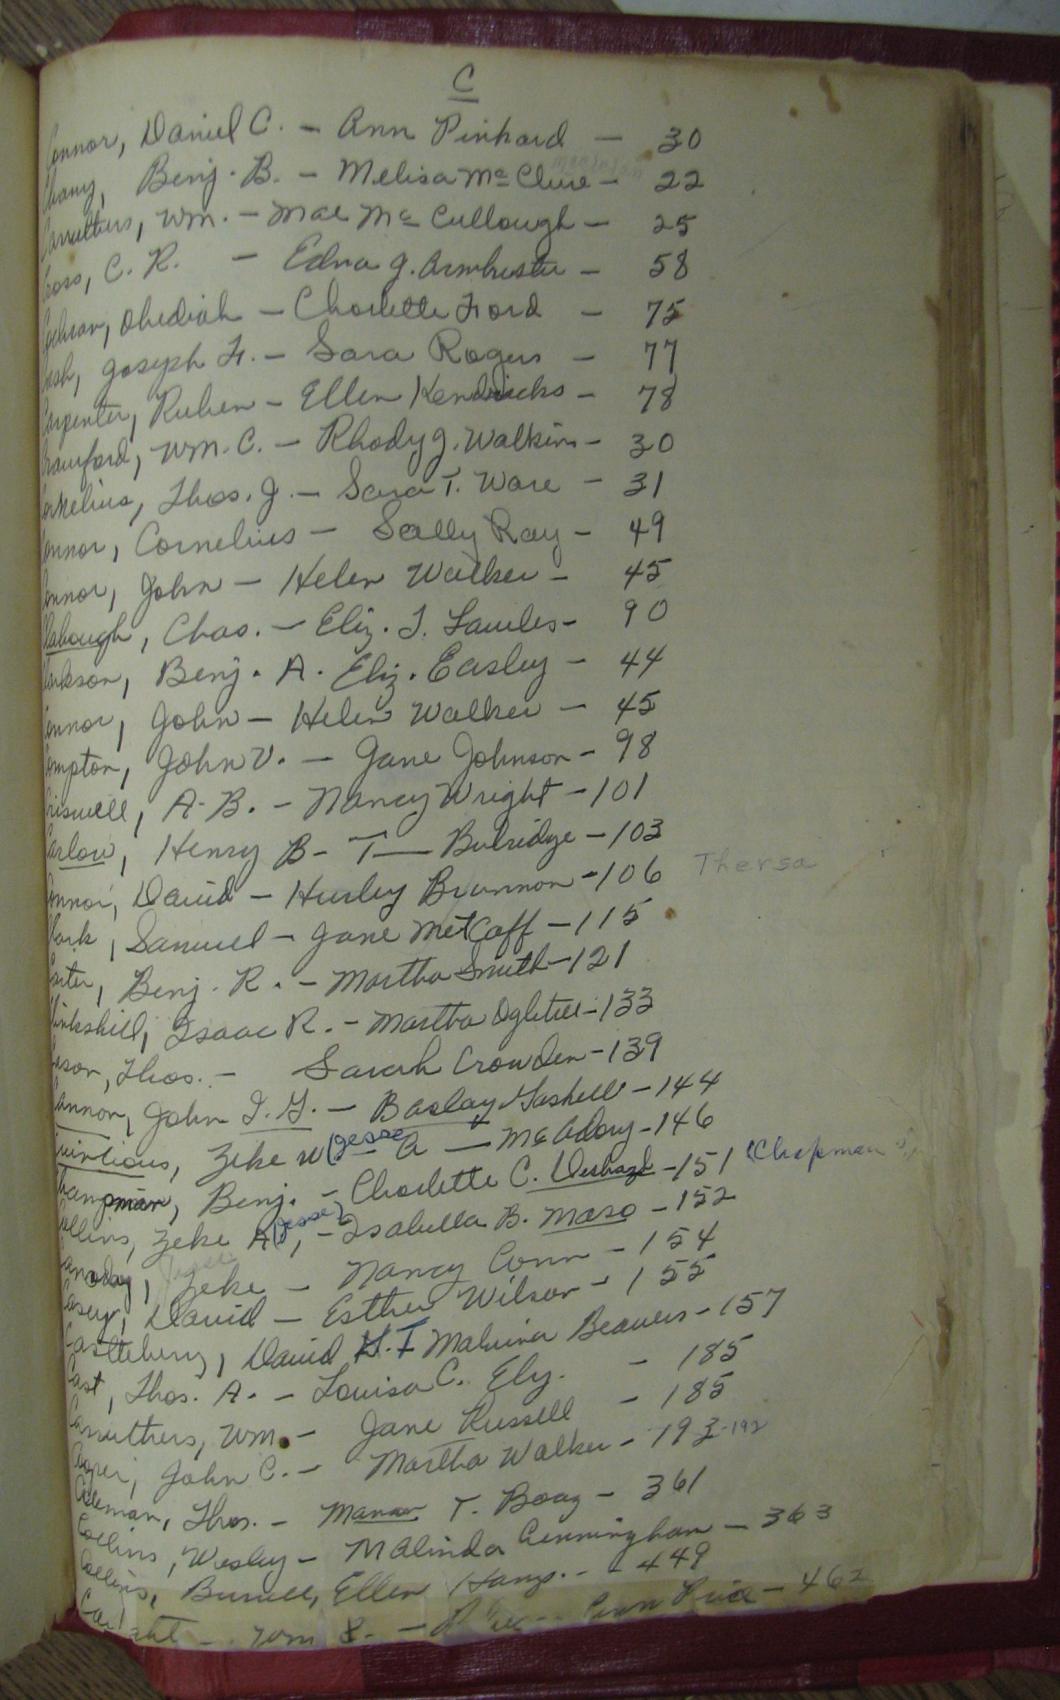 C
Connor, Daniel C. - Ann Pinkard - 30
Chany, Benj. B. - Melisa McClure - 22
Carruthers, Wm. - Mae McCullough - 25
Cross, C. R. - Edna J. Armbrister - 58
Cochran, Obediah - Charlette Ford - 75
Cash, Joseph F. - Sara Rogers - 77
Carpenter, Ruben - Ellen Kendricks - 78
Crawford, Wm. C. - Rhody J. Walkins - 30
Cornelius, Thos. J. - Sara T. Ware - 31
Connor, Cornelius - Sally Ray - 49
Connor, John - Helen Walker - 45
Clabough, Chas. - Eliz. T. Lawles - 90
Clarkson, Benj. A. Eliz. Easley - 44
Connor, John - Helen Walker - 45
Compton, John V. - Jane Johnson - 98
Criswell, A. B. - Nancy Wright - 101
Carlow, Henry B - T— Bulridge - 103
Connor, David - Hurley Brannon - 106 Thersa
Clark, Samuel - Jane Metcaff - 115
Carter, Benj. R. - Martha Smith - 121
Isaac R. - Martha Ogletree - 133
Thos. - Sarah Crowden - 139
Cannon, John I. G. - Baslay Gaskell - 144
Zeke W (Jesse A - McAdory - 146
Chapman, Benj. - Charlette C. - 151 (Chapman
Collins, Zeke A (Jesse), - Isabella B. Maso - 152
Zeke - Nancy Conn - 154
Casey, David - Esther Wilson - 155
Castleberry, David H. T Malvina Beavers - 157
Cast, Thos. A. - Louisa C. Ely. - 185
Carruthers, Wm. - Jane Russell - 185
Cooper, John C. - Martha Walker - 193-192
Coleman, Thos. - T. Boaz - 361
Collins, Wesley - Malinda Cunningham - 363
Collins, Burrell, Ellen Hamp. - 449
Wm S. - Ann Price - 462